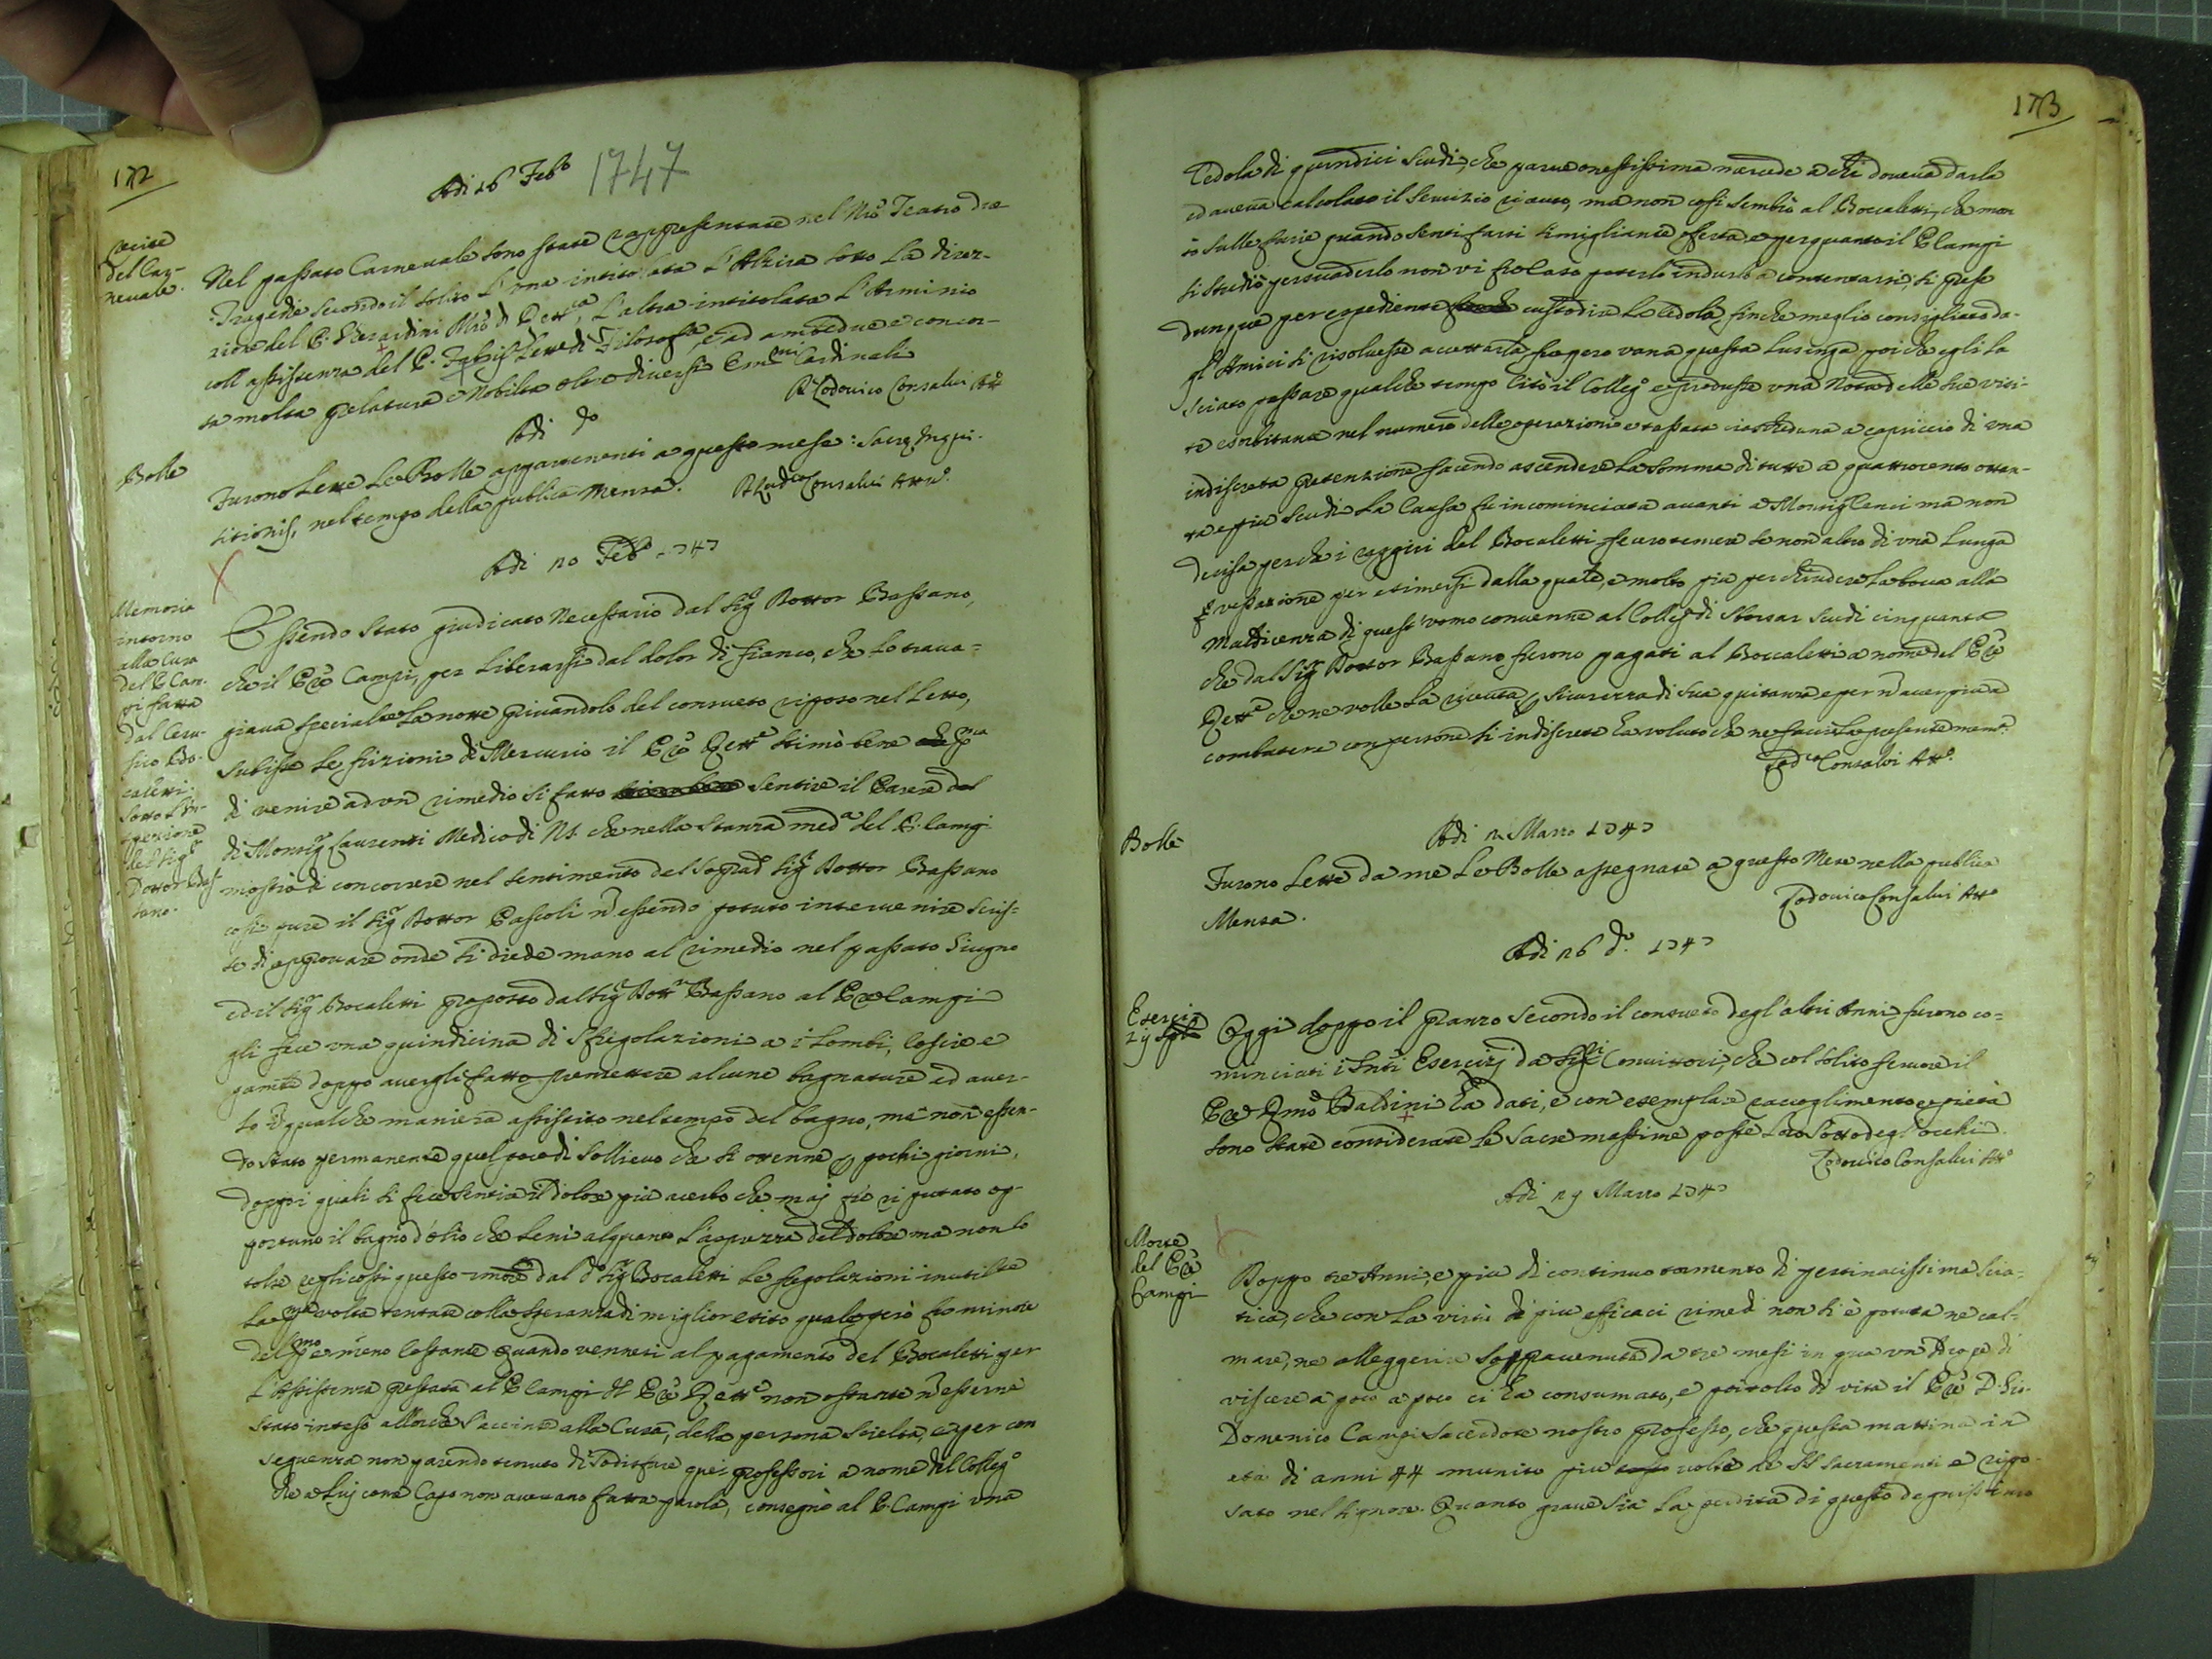 172
Adi 16 Feb.o 1747
recite
del Car-
nevale.
Nel passato Carnevale sono state rappresentate nel Nr̃o Teatro due
Tragedie secondo il solito L'una intitolata L'Alzira sotto la direz-
zione del P. Gherardini Mr̃o di Rett.ca, L'altra intitolata L'Arminio
coll'assistenza del P. Lett.e di Filosofia, e ad ambedue è concor-
sa molta prelatura e Nobiltà oltre diversi Em.mi Cardinali
P. Lodovico Consalvi Att.o
Adi d.o
Bolle
Furono Lette Le Bolle appartenenti a questo mese: Sacrę Inqui-
sitionis, nel tempo della publica Mensa.
P. Lod.co Consalvi Att.o
Adi 20 Feb.o 1747
Memoria
intorno
alla Cura
del P. Cam-
pi fatta
dal Ceru-
sico Bo-
caletti
sotto L'in-
spezione
del Sig.r
Dottor Bas-
sano.
Essendo stato giudicato Necessario dal Sig.r Dottor Bassano,
che il P̃re Campi, per liberarsi dal dolor di fianco, che lo trava-
giava specialm.te La notte privandolo del consueto riposo nel Letto,
subisse le frizioni di Mercurio il P̃re Rett.e stimò bene p.ma
di venire ad un rimedio si fatto sentire il Parere
di Monsig.r Laurenti Medico di N.S. che nella stanza med.a del P. Campi
mostrò di concorrere nel sentimento del Soprad.o Sig.r Dottor Bassano
cosi pure il Sig.r Dottor Pascoli ñ essendo potuto intervenire scris-
se di approvare onde si diede mano al rimedio nel passato Giugno
ed il Sig.r Bocaletti proposto dal Sig.r Dott.r Bassano al P̃re Campi
gli fece una quindicina di Sfregolazioni a i Lombi, coscie e
gambe doppo avergli fatto premettere alcune bagnature ed aver-
lo in qualche maniera assistito nel tempo del bagno, ma non essen-
do stato permanente quel poco di Sollievo che si ottenne p pochi giorni,
doppo i quali si fece sentire il dolore più acerbo che maj fù riputato op-
portuno il bagno d'olio che lenì alquanto L'asprezza del dolore ma non lo
tolse reglicossi questo dal d.o Sig.r Bocaletti Le fregolazioni inutilm.te
La p.ma volta tentate colla speranza di miglior esito quale però fù minore
del p.mo e meno costante Quando vennesi al pagamento del Bocaletti per
L'Assistenza prestata al P. Campi il P̃re Rett.e non ostante ñ esserne
stato inteso allorche s'accinse alla Cura, della persona scielta, e per con
seguenza non parendo tenuto di sodisfare quei professori a nome del Colleg.o
che a Lui come Capo non avevano fatta parola, consegnò al P. Campi una
173
Cedola di quindici Scudi, che parve onestissima mercede a chi doveva darla
ed aveva calcolato il Servizio ricevuto, ma non cosi sembrò al Boccaletti, che mon-
tò sulle furie quando sentì farsi simigliante oferta, e per quanto il P Campi
si studiò persuaderlo non vi fù caso poterlo indurlo a contentarsi, si prese
dunque per espediente custodire La Cedola, finche meglio consigliato da-
gl'Amici si risolvesse accettarla, fù però vana questa Lusinga poiche egli la
sciato passare qualche tempo Citò il Colleg.o e produsse una Nota delle sue visi-
te esorbitante nel numero delle operazioni e tassata ciascheduna a capriccio di una
indiscreta pretenzione facendo ascendere La Somma di tutte a quattrocento ottan-
ta e più Scudi La Causa fù incominciata avanti a Monsig Cenci ma non
decisa perche i raggiri del Bocaletti fecero temere se non altro di una Lunga
vessazione per esimersi dalla quale, e molto più per chiudere La bocca alla
maldicenza di quest'uomo convenne al Colleg.o di sborsar Scudi cinquanta
che dal Sig.r Dottor Bassano furono pagati al Boccaletti a nome del P̃re
Rett.e che ne volle La ricevuta p sicurezza di sua quitanza e per ñ aver più a
combattere con persone si indiscrete ha voluto che ne faccia La presente mem.a
Lod.co Consalvi Att.o
Bolle
Adi 2 Marzo 1747
Furono Lette da me Le Bolle assegnate a questo Mese nella publica
Mensa.
Lodovico Consalvi Att.o
Adi 26 d.o 1747
Esercizj
Oggi doppo il Pranzo secondo il consueto degl'altri Anni furono co-
minciati i Snti Esercizj da Sig.ri Convittori, che col solito fervore il
P̃re Baldini ha dati, e con esemplare raccoglimento e pietà
sono state considerate le Sacre massime poste Loro Sotto degl'occhi
Lodovico Consalvi Att.o
Adi 29 Marzo 1747
Morte
del P̃re
Campi
Doppo tre Anni, e più di continuo tormento di pertinacissima Scia-
tica, che con La virtù di più efficaci rimedi non si è potuta ne cal-
mare, ne alleggerire Sopravenuta da tre mesi in qua un di
viscere a poco a poco ci ha consumato, e poi tolto di vita il P̃re D. Gio.
Domenico Campi Sacerdote nostro professo, che questa mattina in
età di anni 44 munito più volte de SS Sacramenti è ripo-
sato nel Signore. Quanto grave sia La perdita di questo degnissimo